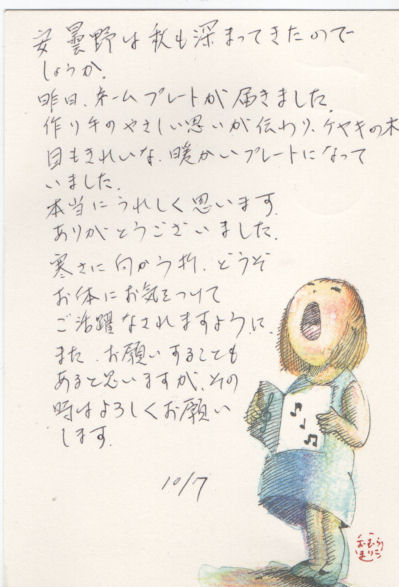 安曇野は秋も深まってきたので
しょうか.
昨日、ネームプレートが届きました.
作り手のやさしい思いが伝わり、ケヤキの木
目もきれいな、暖かいプレートになって
いました.
本当にうれしく思います.
ありがとうございました.
寒さに向かう折、どうぞ
お体にお気をつけて
ご活躍なされますように.
また、お願いすることも
あると思いますが、その
時はよろしくお願い
します.
10/7